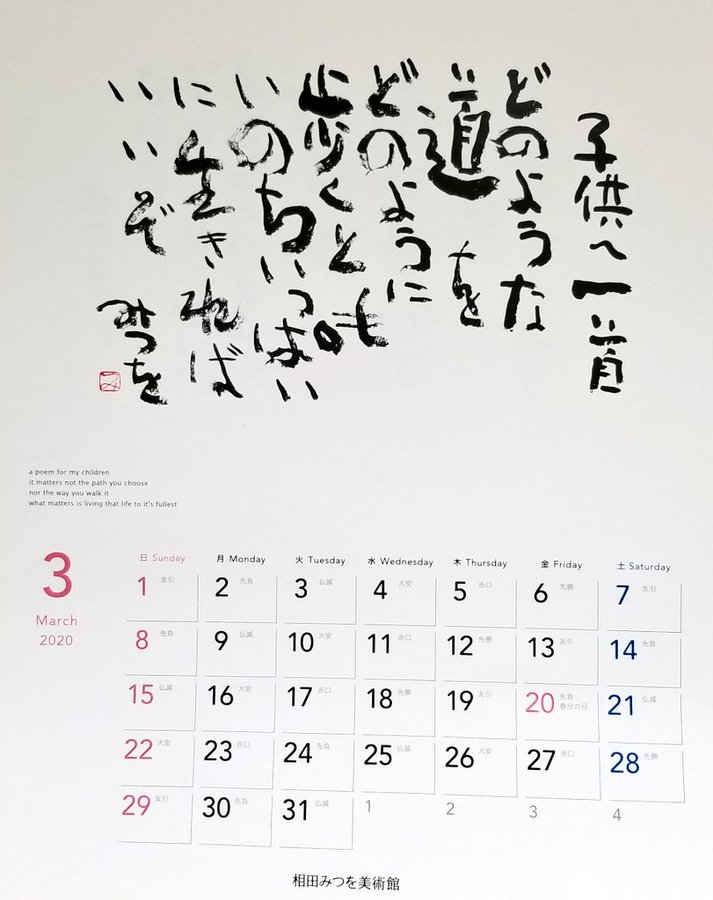 子供へ一首
どのような
道を
どのように
歩くとも
いのちいっぱい
に生きれば
いいぞ
みつを
a poem for my children
it matters not the path you choose
nor the way you walk it
what matters is living that life to it's fullest
3
March
2020
日 Sunday 月 Monday 火 Tuesday 水 Wednesday 木 Thursday 金 Friday 土 Saturday
1 友引 2 先負 3 仏滅 4 大安 5 赤口 6 先勝 7 友引
8 先負 9 仏滅 10 大安 11 赤口 12 先勝 13 友引 14 先負
15 仏滅 16 大安 17 赤口 18 先勝 19 友引 20 先負 春分の日 21 仏滅
22 大安 23 赤口 24 先負 25 仏滅 26 大安 27 赤口 28 先勝
29 友引 30 先負 31 仏滅 1 2 3 4
相田みつを美術館